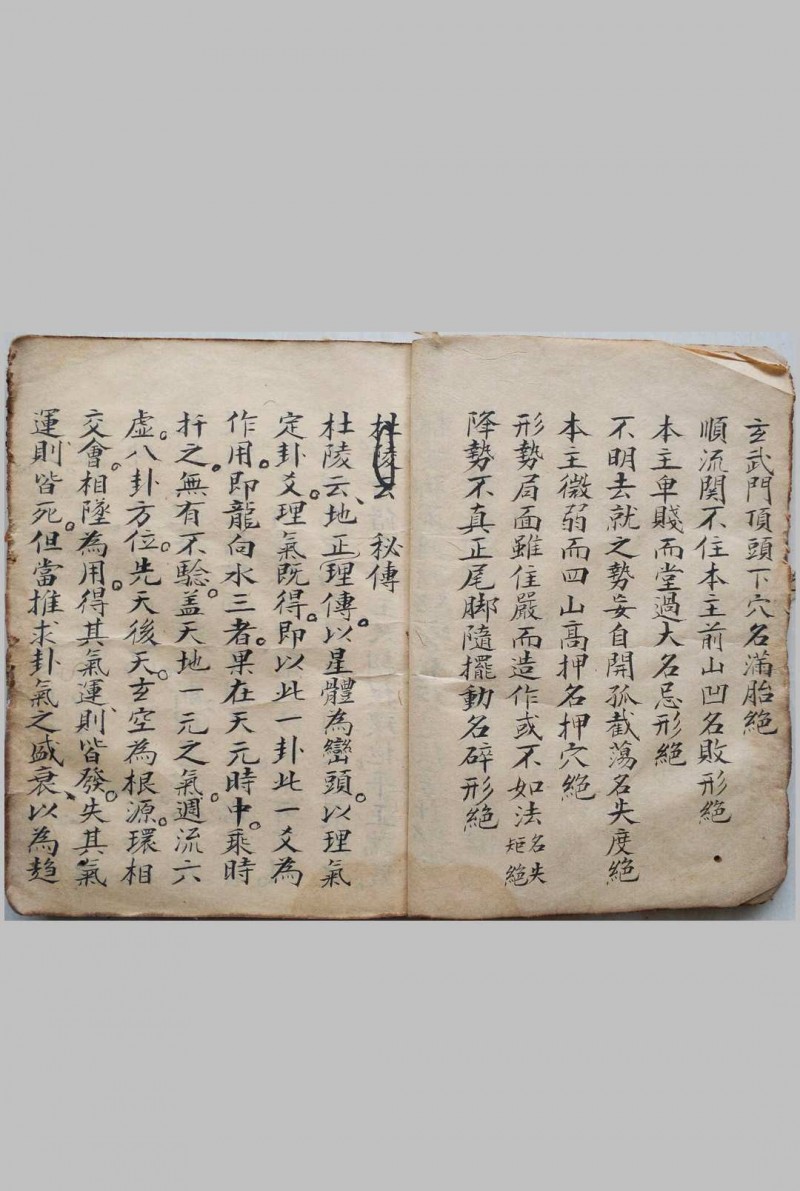 玄武門頂頭下穴名滿胎絕
順流関不住本主前山凹名敗形絕
本主卑賤而堂過大名忌形絕
不明去就之勢妄自開孤截蕩名失度絕
本主微弱而四山高押名押穴絕
形勢局面雖住嚴而造作或不如法名失矩絕
降勢不真正尾脚隨擺動名碎形絕
杜陵云 秘傳
杜陵云、地正理傳。以星體為巒頭。以理氣
定卦爻。理氣既得。即以此一卦此一爻為
作用。即龍向水三者。果在天元時中。乘時
扦之。無有不驗。盖天地一元之氣。週流六
虛。八卦方位。先天後天。玄空為根源。環相
交會。相墜為用。得其氣運、則皆發。失其氣
運、則皆死。但當推求卦氣之盛衰、以為趋